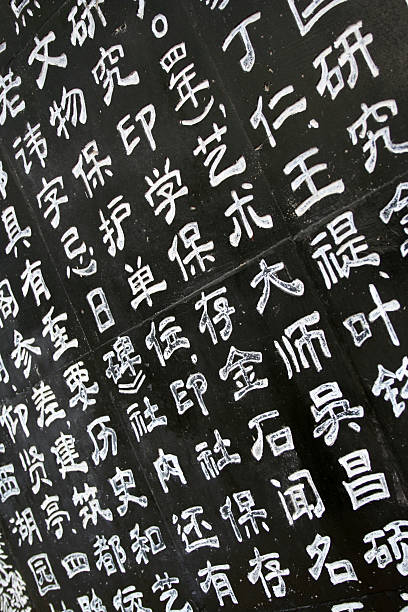 研究
丁仁王禔叶
四年）艺术大师吴昌硕
究印学保存金石闻名
文物保护单位，印社保存
老讳字忌日碑》社内还有
具有重要历史和艺
阁参差建筑都
仰贤亭四
西湖园